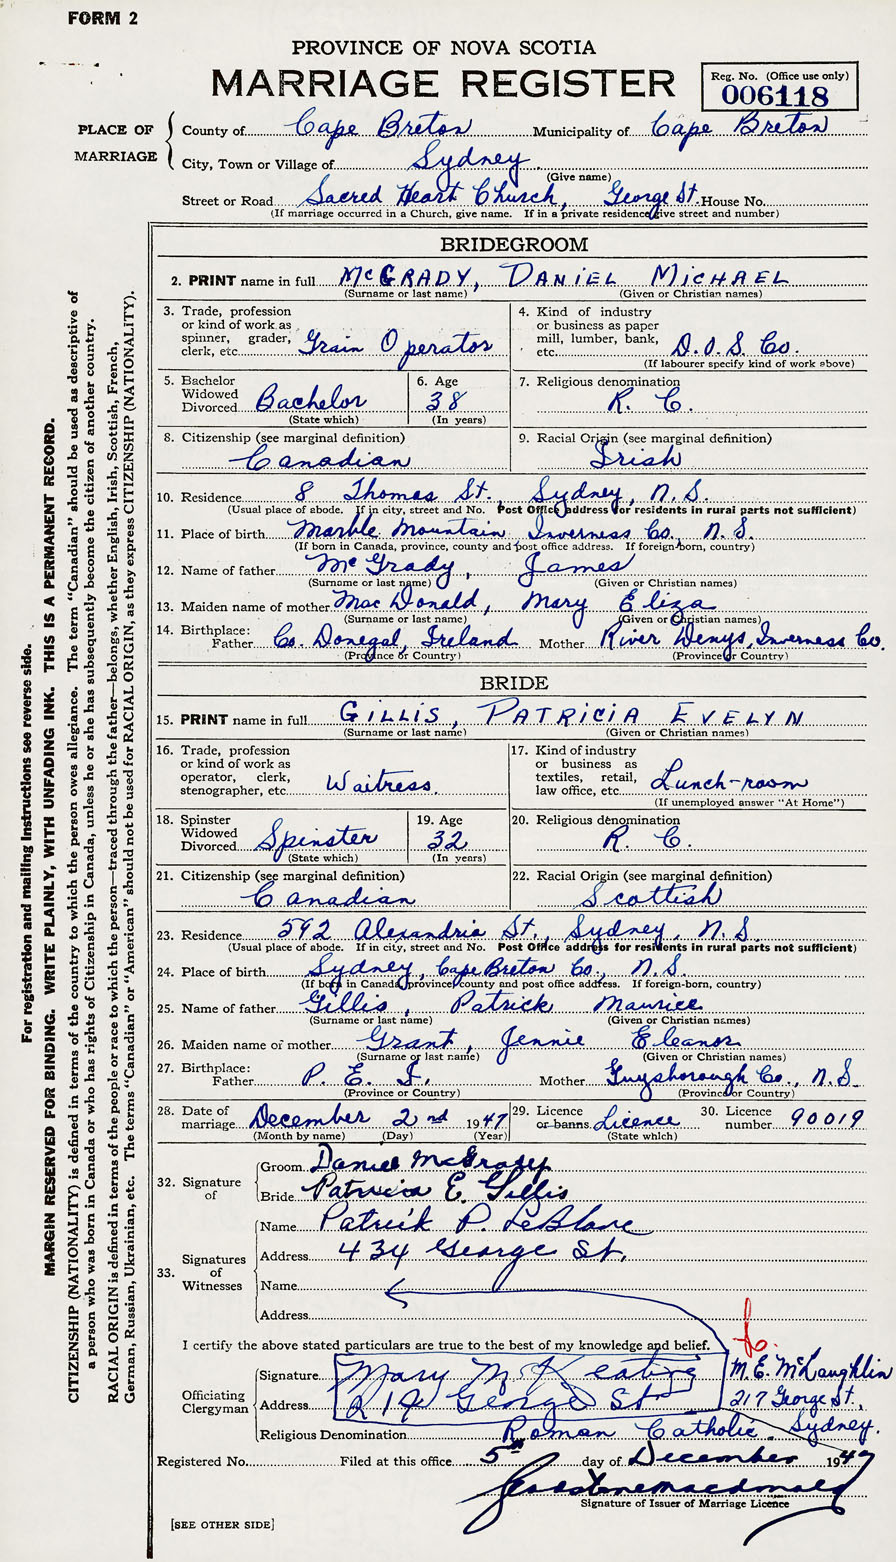 FORM 2
PROVINCE OF NOVA SCOTIA
MARRIAGE REGISTER
Reg. No. (Office use only)
006118
PLACE OF MARRIAGE
County of Cape Breton Municipality of Cape Breton
City, Town or Village of Sydney
(Give name)
Street or Road Sacred Heart Church, George St. House No.
(If marriage occurred in a Church, give name. If in a private residence give street and number)
BRIDEGROOM
2. PRINT name in full McGRADY, DANIEL MICHAEL
(Surname or last name) (Given or Christian names)
3. Trade, profession or kind of work as spinner, grader, clerk, etc. Grain Operator
4. Kind of industry or business as paper mill, lumber, bank, etc. D.O.S. Co.
(If labourer specify kind of work above)
5. Bachelor Widowed Divorced Bachelor
(State which)
6. Age 38
(In years)
7. Religious denomination R. C.
8. Citizenship (see marginal definition) Canadian
9. Racial Origin (see marginal definition) Irish
10. Residence 8 Thomas St., Sydney, N.S.
(Usual place of abode. If in city, street and No. Post Office address for residents in rural parts not sufficient)
11. Place of birth Marble Mountain Inverness Co., N.S.
(If born in Canada, province, county and post office address. If foreign-born, country)
12. Name of father McGrady, James
(Surname or last name) (Given or Christian names)
13. Maiden name of mother MacDonald, Mary Eliza
(Surname or last name) (Given or Christian names)
14. Birthplace: Father Co. Donegal, Ireland Mother River Denys, Inverness Co.
(Province or Country) (Province or Country)
BRIDE
15. PRINT name in full GILLIS, PATRICIA EVELYN
(Surname or last name) (Given or Christian names)
16. Trade, profession or kind of work as operator, clerk, stenographer, etc. Waitress.
17. Kind of industry or business as textiles, retail, law office, etc. Lunch-room
(If unemployed answer "At Home")
18. Spinster Widowed Divorced Spinster
(State which)
19. Age 32
(In years)
20. Religious denomination R. C.
21. Citizenship (see marginal definition) Canadian
22. Racial Origin (see marginal definition) Scottish
23. Residence 592 Alexandria St., Sydney, N.S.
(Usual place of abode. If in city, street and No. Post Office address for residents in rural parts not sufficient)
24. Place of birth Sydney, Cape Breton Co., N.S.
(If born in Canada province county and post office address. If foreign-born, country)
25. Name of father Gillis, Patrick Maurice
(Surname or last name) (Given or Christian names)
26. Maiden name of mother Grant, Jennie Eleanor
(Surname or last name) (Given or Christian names)
27. Birthplace: Father P. E. I. Mother Guysborough Co., N.S.
(Province or Country) (Province or Country)
28. Date of marriage December 2nd 1947
(Month by name) (Day) (Year)
29. Licence or banns Licence
(State which)
30. Licence number 90019
32. Signature of
Groom Daniel McGrady
Bride Patricia E. Gillis
33. Signatures of Witnesses
Name Patrick P. LeBlanc
Address 434 George St.
Name
Address
I certify the above stated particulars are true to the best of my knowledge and belief.
Officiating Clergyman
Signature Mary McKeating M.E. McLaughlin
Address 219 George St 217 George St., Sydney.
Religious Denomination Roman Catholic
Registered No. Filed at this office 5th day of December 1947
Signature of Issuer of Marriage Licence
[SEE OTHER SIDE]
For registration and mailing instructions see reverse side.
MARGIN RESERVED FOR BINDING. WRITE PLAINLY, WITH UNFADING INK. THIS IS A PERMANENT RECORD.
CITIZENSHIP (NATIONALITY) is defined in terms of the country to which the person owes allegiance. The term "Canadian" should be used as descriptive of
a person who was born in Canada or who has rights of Citizenship in Canada, unless he or she has subsequently become the citizen of another country.
RACIAL ORIGIN is defined in terms of the people or race to which the person—traced through the father—belongs, whether English, Irish, Scottish, French,
German, Russian, Ukrainian, etc. The terms "Canadian" or "American" should not be used for RACIAL ORIGIN, as they express CITIZENSHIP (NATIONALITY).